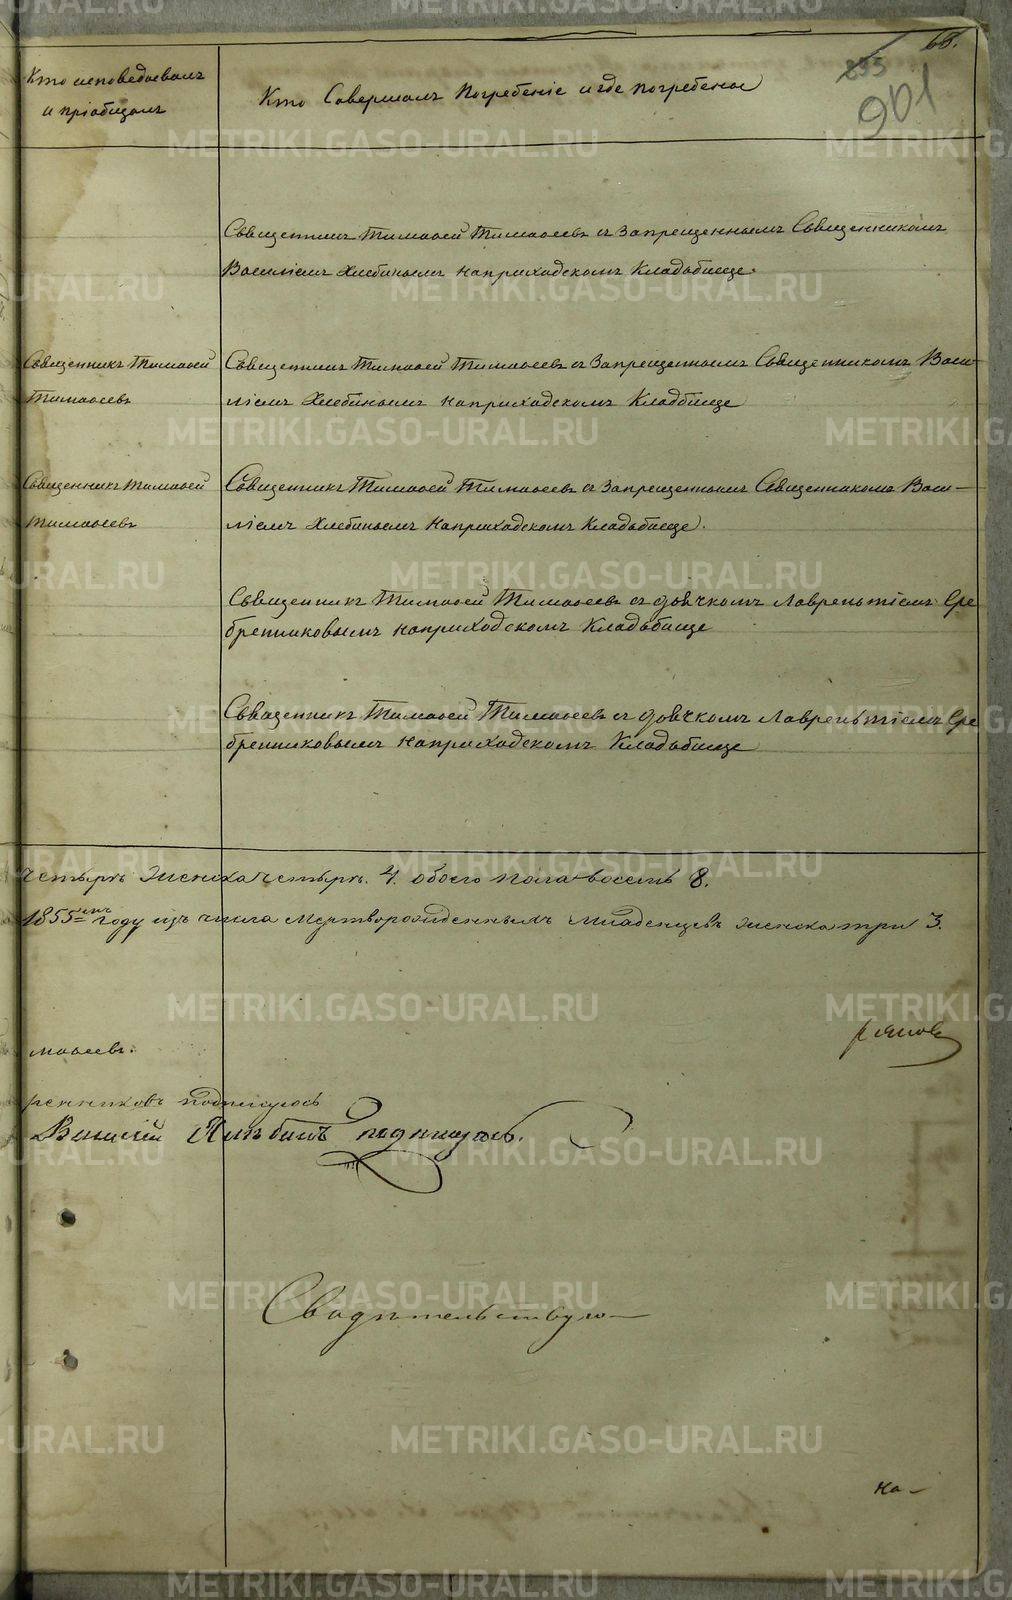 66.
235
901
Кто исповедовалъ
и пріобщалъ
Кто Совершалъ Погребеніе и где погребены
Священникъ Тимофей Тимофеевъ съ Запрещеннымъ Священникомъ
Василіемъ Хлебинымъ наприходскомъ Кладбище.
Священникъ Тимофей
Тимофеевъ
Священникъ Тимофей Тимофеевъ съ Запрещеннымъ Священникомъ Васи-
ліемъ Хлебинымъ наприходскомъ Кладбище
Священникъ Тимофей
Тимофеевъ
Священникъ Тимофей Тимофеевъ съ Запрещеннымъ Священникомъ Васи-
ліемъ Хлебинымъ наприходскомъ Кладбище.
Священникъ Тимофей Тимофеевъ съ дьячкомъ Лаврентіемъ Сре
бренниковымъ наприходскомъ Кладбище
Священникъ Тимофей Тимофеевъ съ дьячкомъ Лаврентіемъ Сре
бренниковымъ наприходскомъ Кладбище
четыре женска четыре. 4. обоего пола восемь 8.
1855мъ году изъ числа мертворожденныхъ младенцевъ женска три 3.
мофеевъ.
ренниковъ подписуюсь
Василій подпишуюсь.
Свидѣтельствую
На-
METRIKI.GASO-URAL.RU